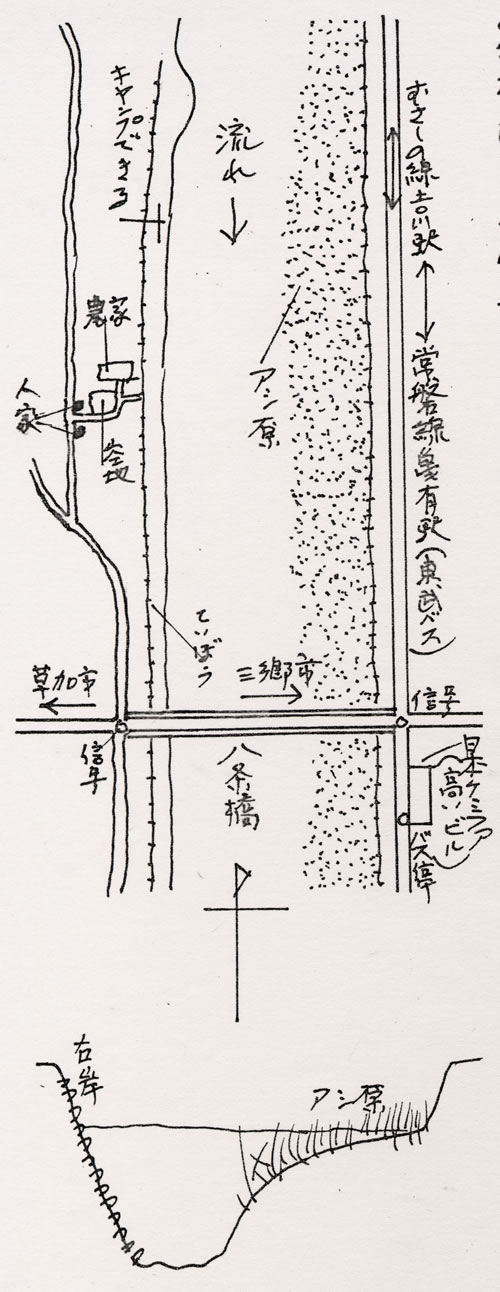 キャンプできる
流れ
むさしの線吉川駅
常磐線亀有駅(東武バス)
農家
アシ原
人家
空地
ていぼう
三郷市
草加市
信号
信号
八条橋
日本ケミファ
(高いビル)
バス停
右岸
アシ原